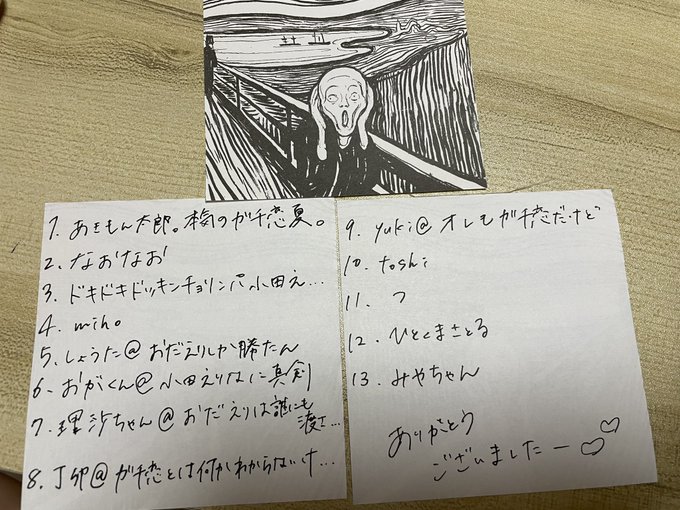 1. あきもん太郎。本気のガチ恋夏。
2. なおなお
3. ドキドキドッキンチョリンパ小田え…
4. miho
5. しょうた@おだえりしか勝たん
6. おがくん@小田えりなに真剣
7. 理沙ちゃん@おだえりは誰にも
渡さ…
8. 丁卯@ガチ恋とは何かわからないけ…
9. yuki@オレもガチ恋だけど
10. toshi
11. つ
12. ひとくまさとる
13. みやちゃん
ありがとう
ございましたー♡♡